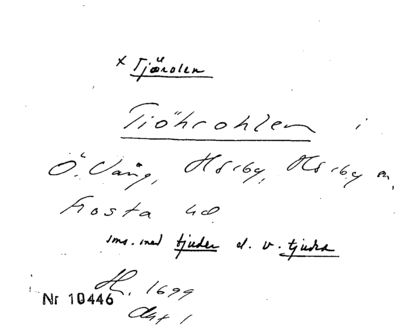 x Tjärölen
Tiöhrohlen i
Ö. Vång, Hörby, Hörby sn,
Frosta hd
sms. med tjuder el. v. tjudra
H. 1699
akt 1
Nr 10446